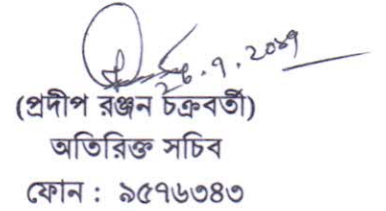 (প্রদীপ রঞ্জন চক্রবর্তী)
অতিরিক্ত সচিব
ফোন : ৯৫৭৬৩৪৩